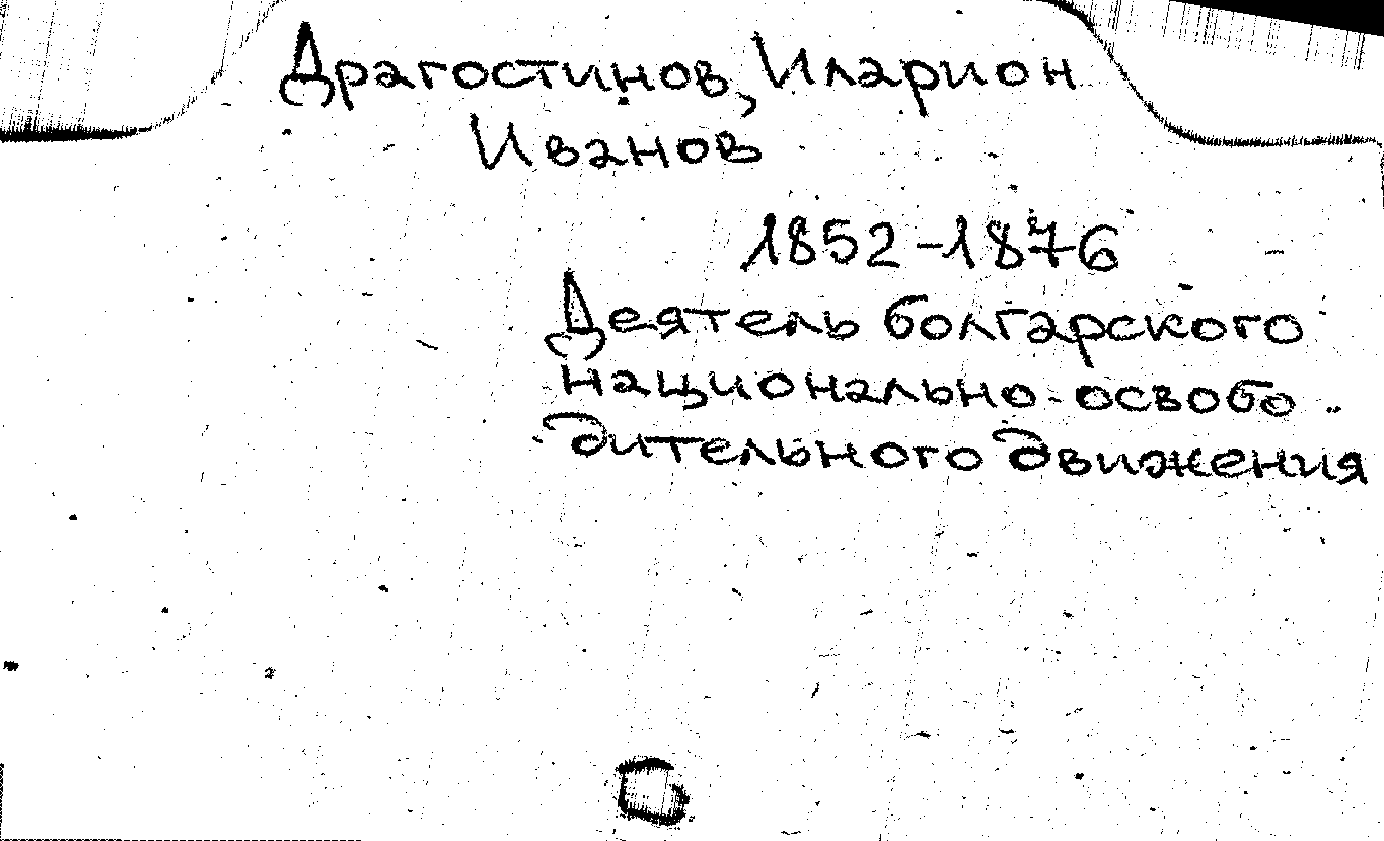 Драгостинов, Иларион
Иванов
1852-1876
Деятель болгарского
национально-освобо-
дительного движения